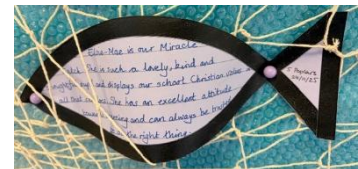 Elsie-Mae is our Miracle
She is such a lovely, kind and
and displays our school Christian values
all that She has an excellent attitude
and can always be trusted
the right thing.
5 Poplars